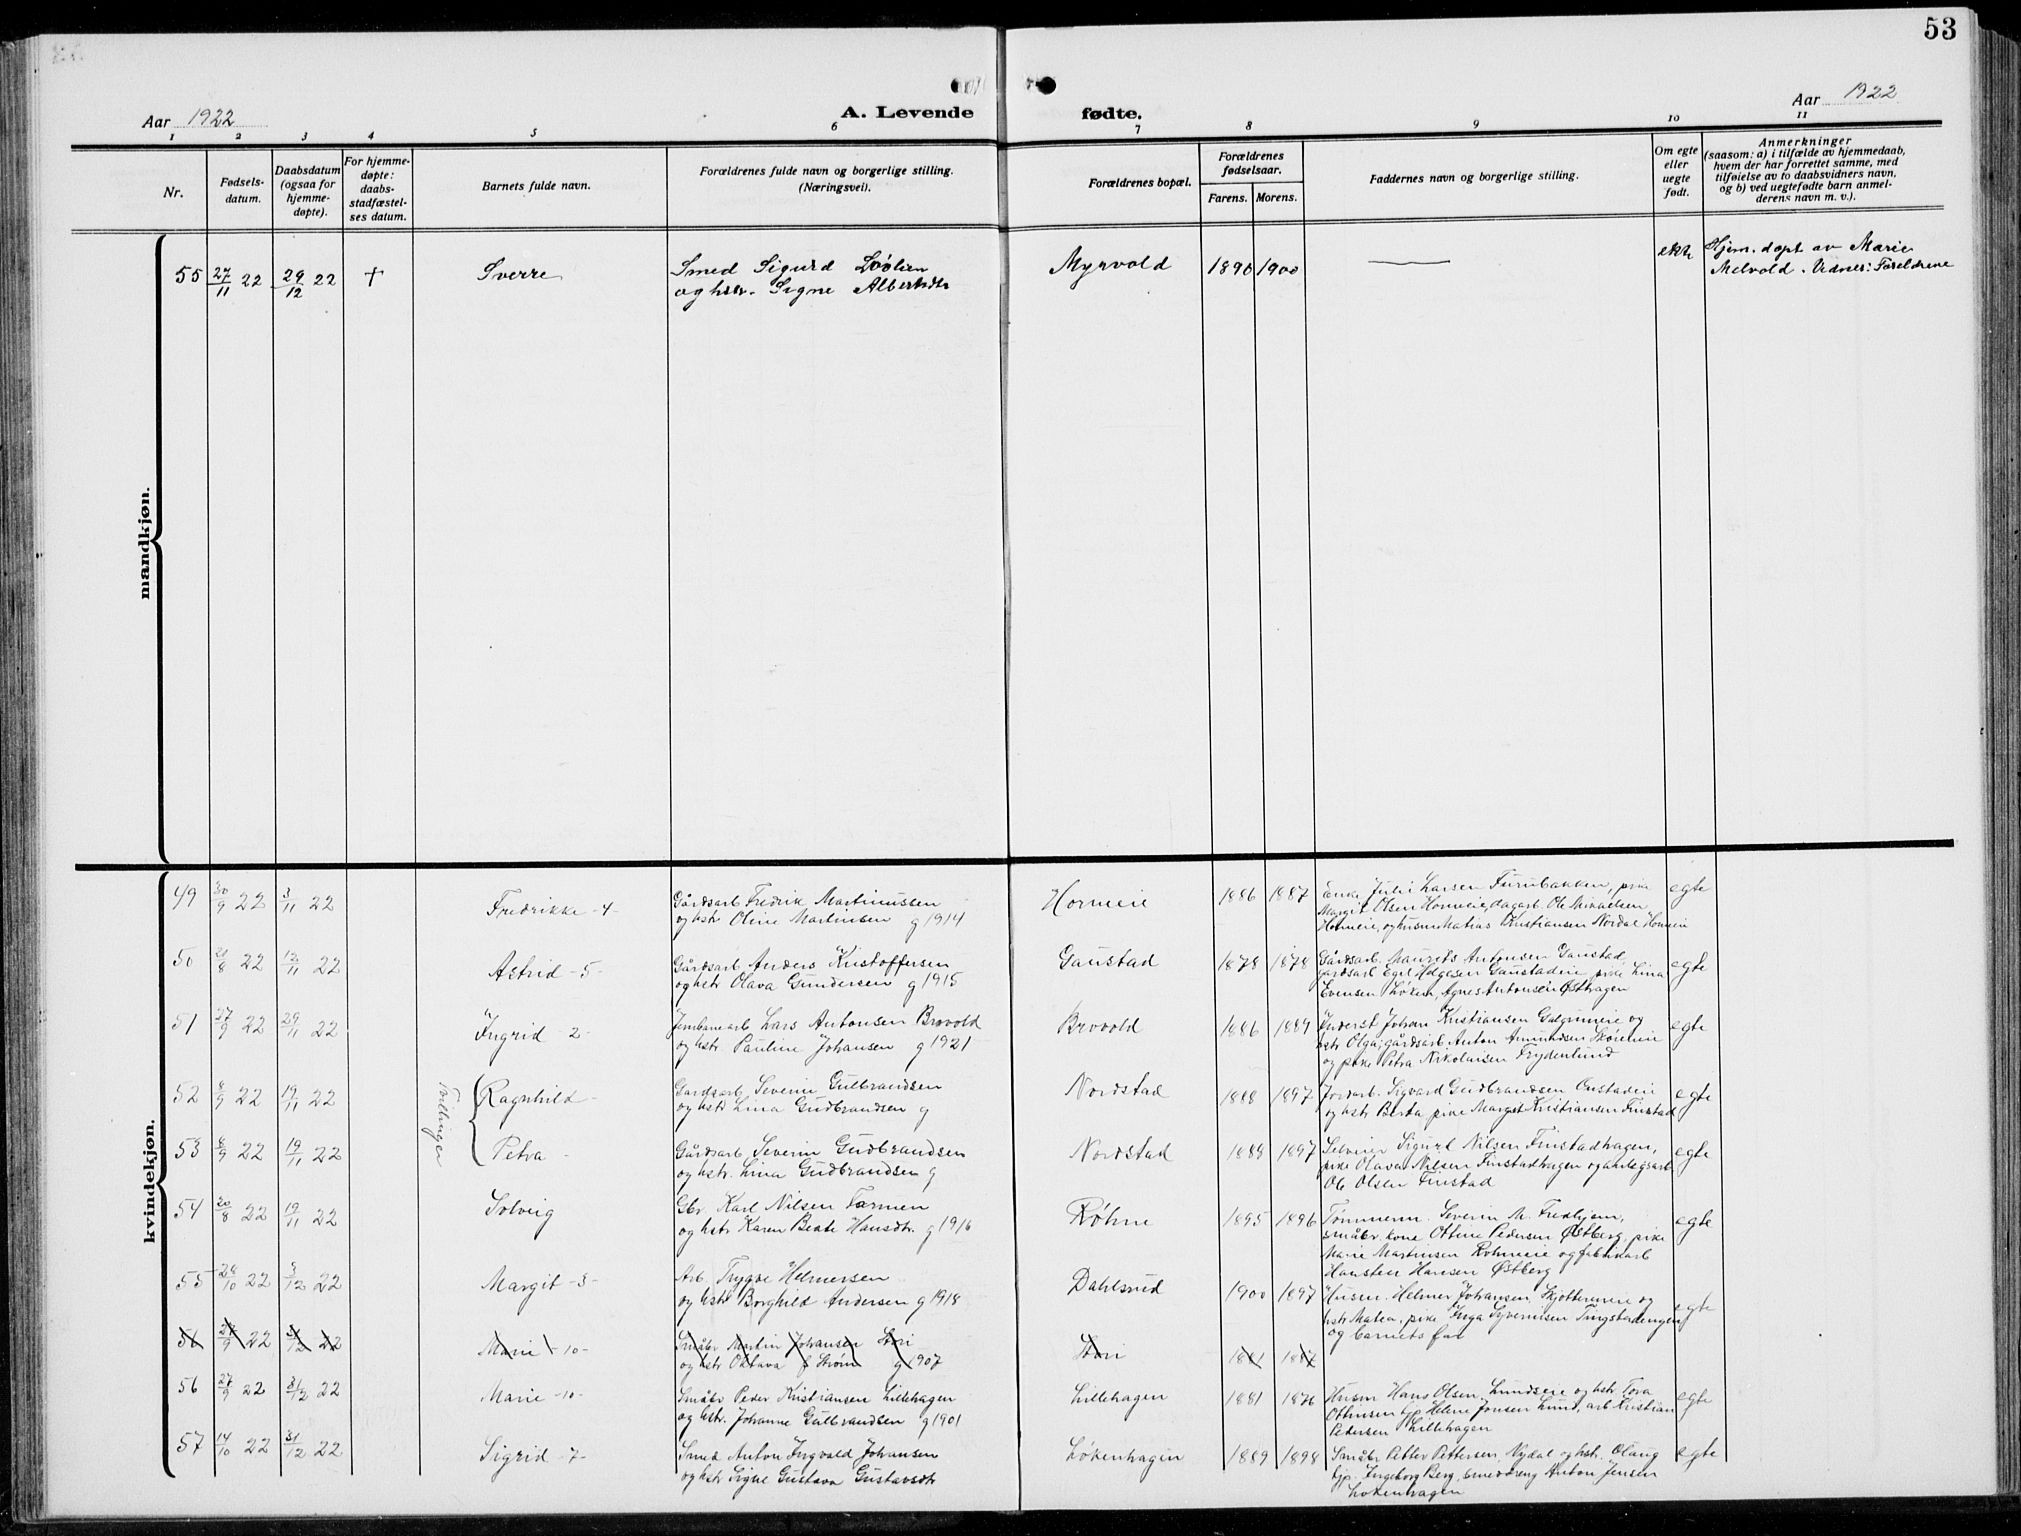 53
Aar 1922
A. Levende fødte.
Aar 1922
1 2 3 4 5 6 7 8 9 10 11
Nr.
Fødsels-
datum.
Daabsdatum
(ogsaa for
hjemme-
døpte).
For hjemme-
døpte:
daabs-
stadfæstel-
ses datum.
Barnets fulde navn.
Forældrenes fulde navn og borgerlige stilling.
(Næringsvei).
Forældrenes bopæl.
Forældrenes
fødselsaar.
Farens. Morens.
Faddernes navn og borgerlige stilling.
Om egte
eller
uegte
født.
Anmerkninger
(saasom: a) i tilfælde av hjemmedaab,
hvem der har forrettet samme, med
tilføielse av to daabsvidners navn,
og b) ved uegtefødte barn anmel-
derens navn m. v.).
mandkjøn.
55 27/11 22 29/12 22 + Sverre
Smed Sigurd
og hstr. Signe
Myrvold 1890 1900
Hjem. døpt av Marie
Melvold. Vidner: Foreldrene
kvindekjøn.
49 30/9 22 3/11 22 Fredrikke -4-
Gårdsarb Fredrik Martinussen
og hstr Oline Martinsen g 1914
Horneie 1886 1887
Enke Julie Larsen Furubakken, pike
Margit Olsen Horneie, dagarb. Ole Mikaelsen
Horneie, og husm Matias Kristiansen Nordal Horneie
egte
50 22 12/11 22 Astrid -5-
Gårdsarb Anders Kristoffersen
og hstr Olava Gundersen g 1915
Gaustad 1878 1878
Gårdsarb. Antonsen Gaustad,
gårdsarb Egil Helgesen Gaustadeie pike Lina
Evensen Løken, Agnes Antonsen Østhagen
egte
51 27/9 22 29/11 22 Ingrid -2-
Jernbanearb Lars Antonsen Brovold
og hstr. Pauline Johansen g 1921
Brovold 1886 1889
Inderst Johan Kristiansen og
hstr Olga; gårdsarb. Anton Amundsen
og pike Petra Nikolaisen Frydenlund
egte
Tvillinger
52 8/9 22 19/11 22 Ragnhild -
Gardsarb Severin Gulbrandsen
og hstr Lina Gudbrandsen g
Nordstad 1888 1897
Jordarb. Sigvard Gudbrandsen
og hstr Berta pike Margit Kristiansen Finstad
egte
53 8/9 22 19/11 22 Petra -
Gårdsarb Severin Gudbrandsen
og hstr. Lina Gudbrandsen g
Nordstad 1888 1897
Selveier Sigurd Nilsen Finstadhagen,
pike Olava Nilsen Finstadhagen og
Ole Olsen Finstad
egte
54 20/8 22 19/11 22 Solveig
Gbr. Karl Nilsen
og hstr Karen Beate Hansdtr. g 1916
Røhne 1895 1896
Tømmerm. Severin M. Fredhjem,
småbr. kone Ottine Pedersen Østberg, pike
Marie Martinsen og fabrikarb
Hansten Hansen Østberg
egte
55 28/10 22 3/12 22 Margit -3-
Arb. Trygve Helmersen
og hstr Borghild Andersen g 1918
Dahlsrud 1900 1897
Husm. Helmer Johansen og
hstr Matea, pike Inga
og barnets far
egte
56 27/9 22 31/12 22 Marie -10-
Småbr Martin Johansen
og hstr Oktava f Strøm g 1907
1881 1887
56 27/9 22 31/12 22 Marie -10-
Småbr Peder Kristiansen Lillehagen
og hstr. Johanne Gulbrandsen g 1901
Lillehagen 1881 1876
Husm Hans Olsen Lundseie og hstr Tora
Ottinsen tjp Helene Jonsen Lund, arb Kristian
Pedersen Lillehagen
egte
57 14/10 22 31/12 22 Sigrid -7-
Smed Anton Ingvald Johansen
og hstr Signe Gustava Gustavsdtr
Løkenhagen 1889 1898
Småbr Petter Pettersen Nydal og hstr. Olaug
tjp. Ingeborg Berg, smeddreng Anton Jensen
Løkenhagen
egte